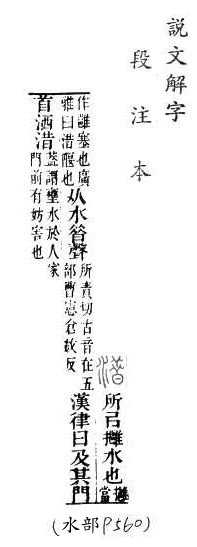 說文解字
段注本
所㠯𢹬水也𢹬當
作雝塞也廣雅曰隄也从水聲所責切古音在五部曹憲倉故反
漢律曰及其門
首洒蓋謂壅水於人家門前有妨害也
(水部P560)